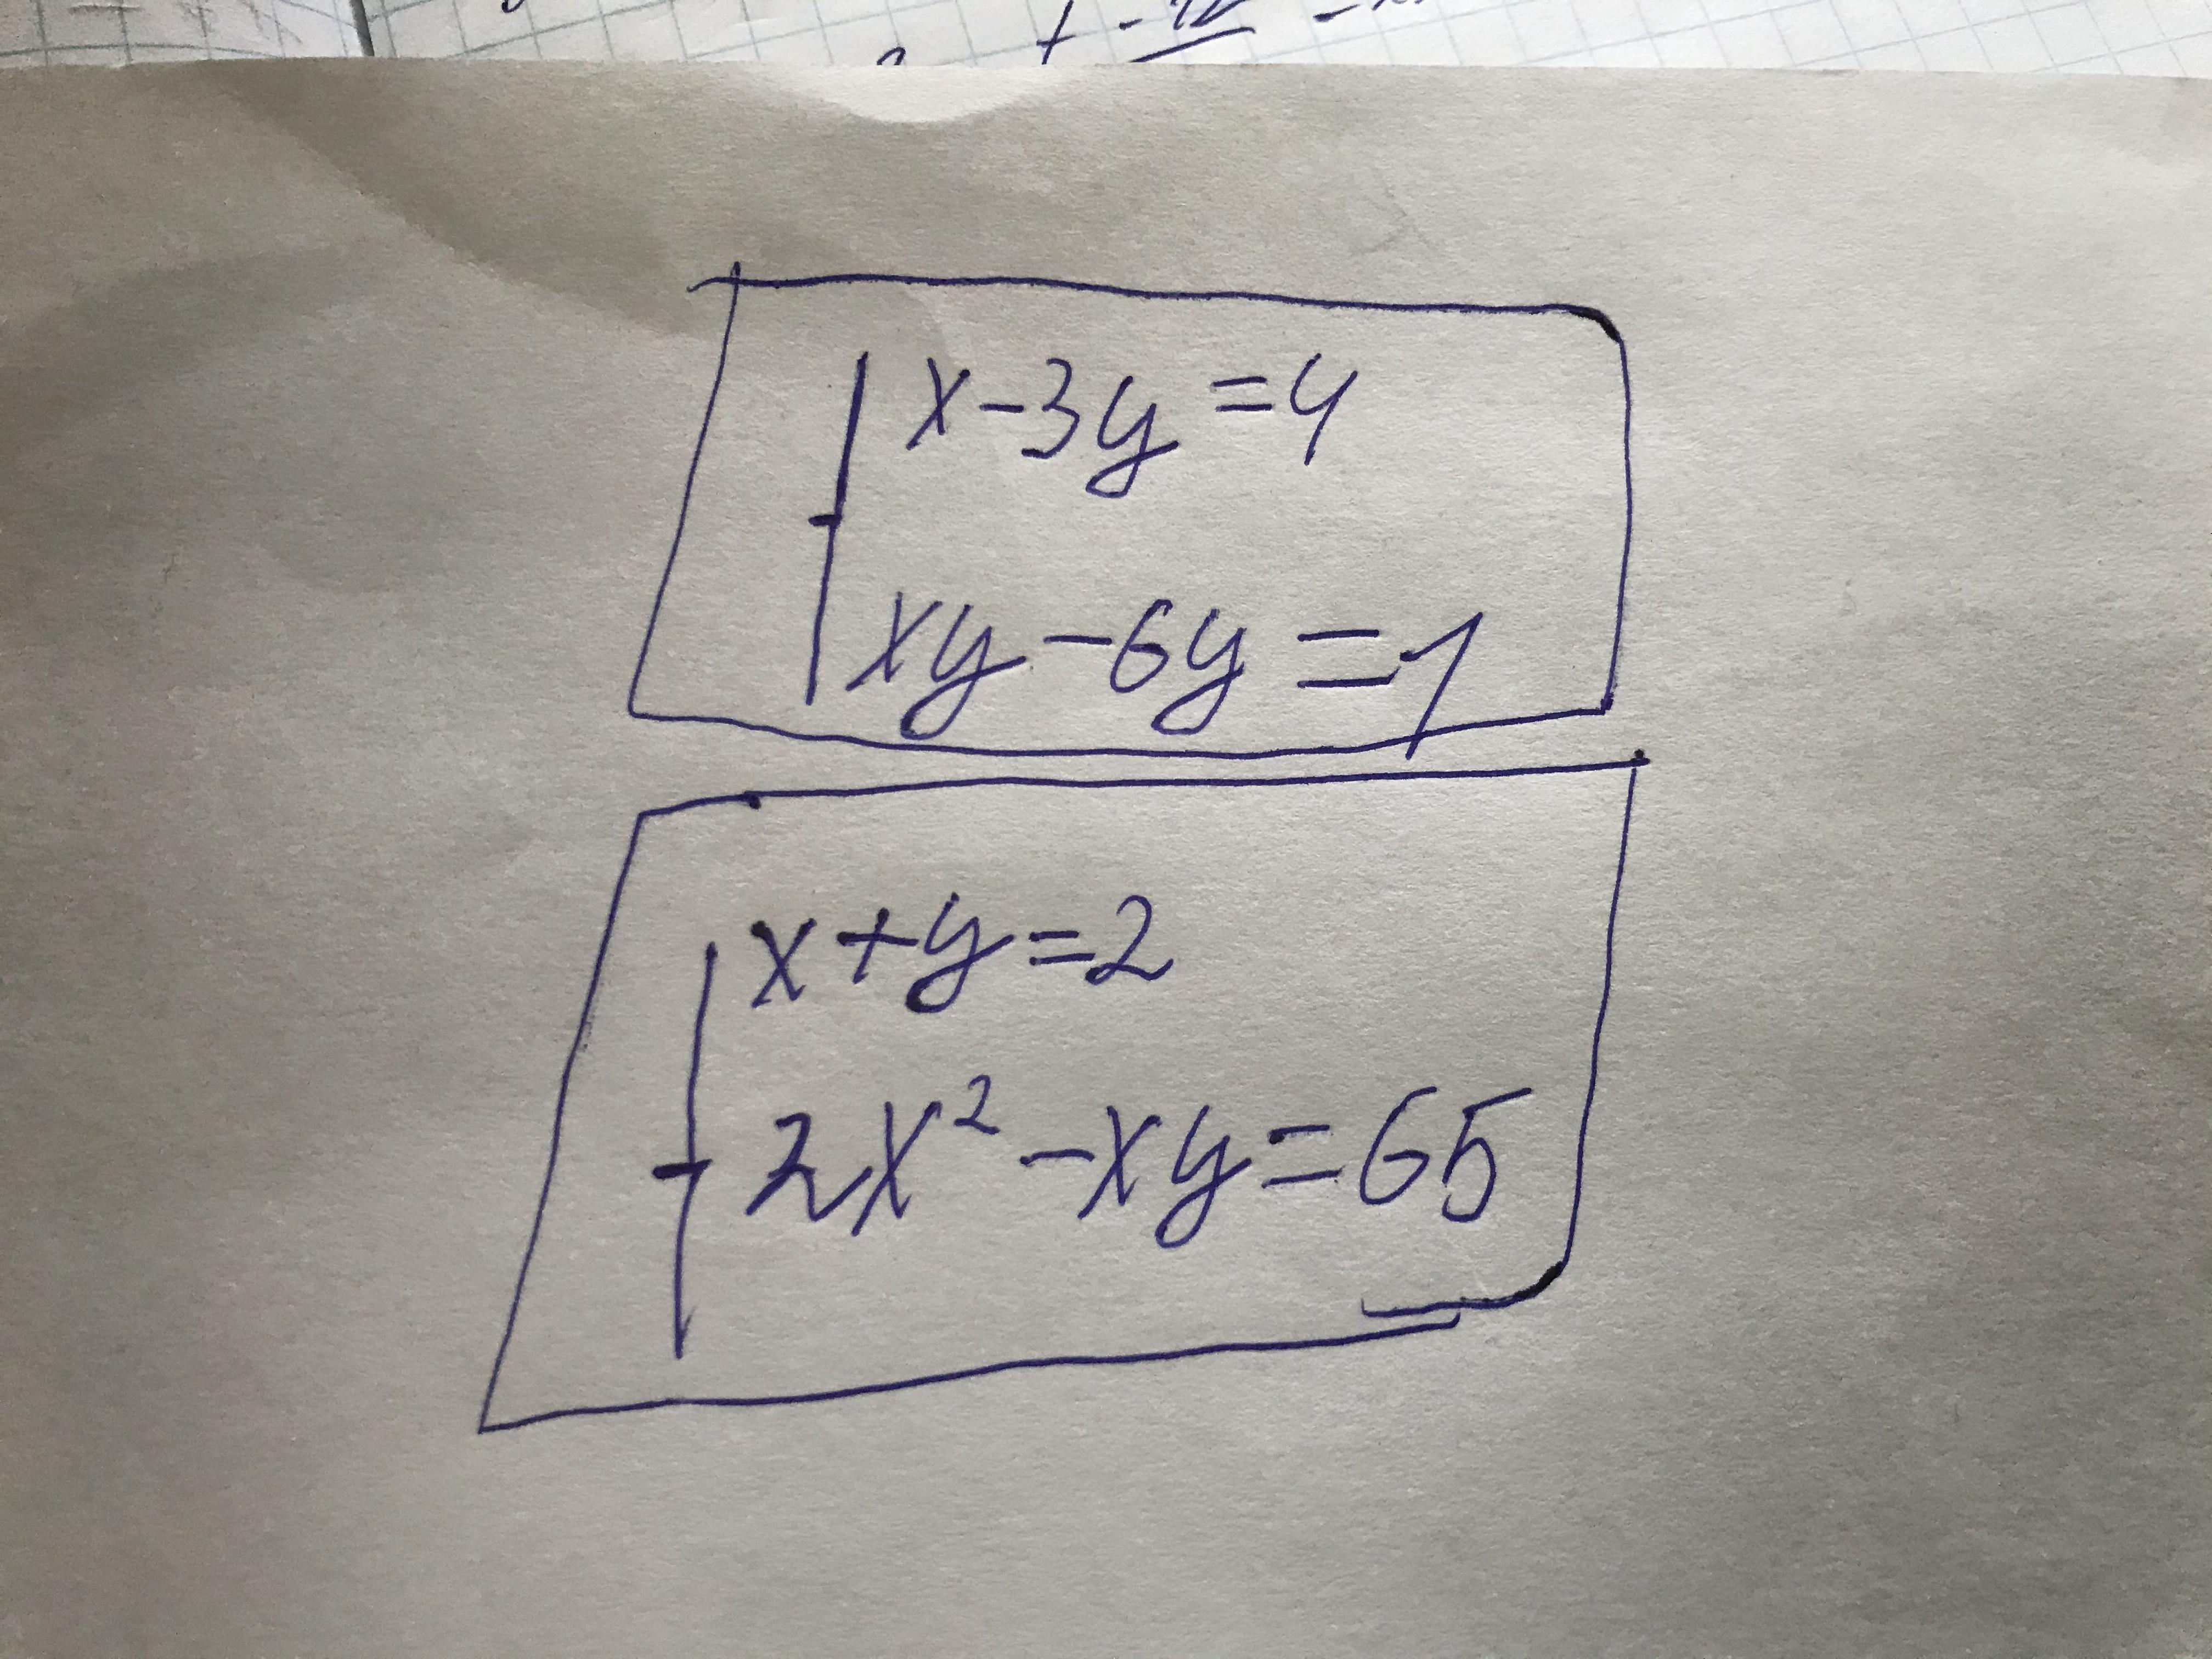 x-3y=4
xy-6y=1
x+y=2
2x²-xy=65